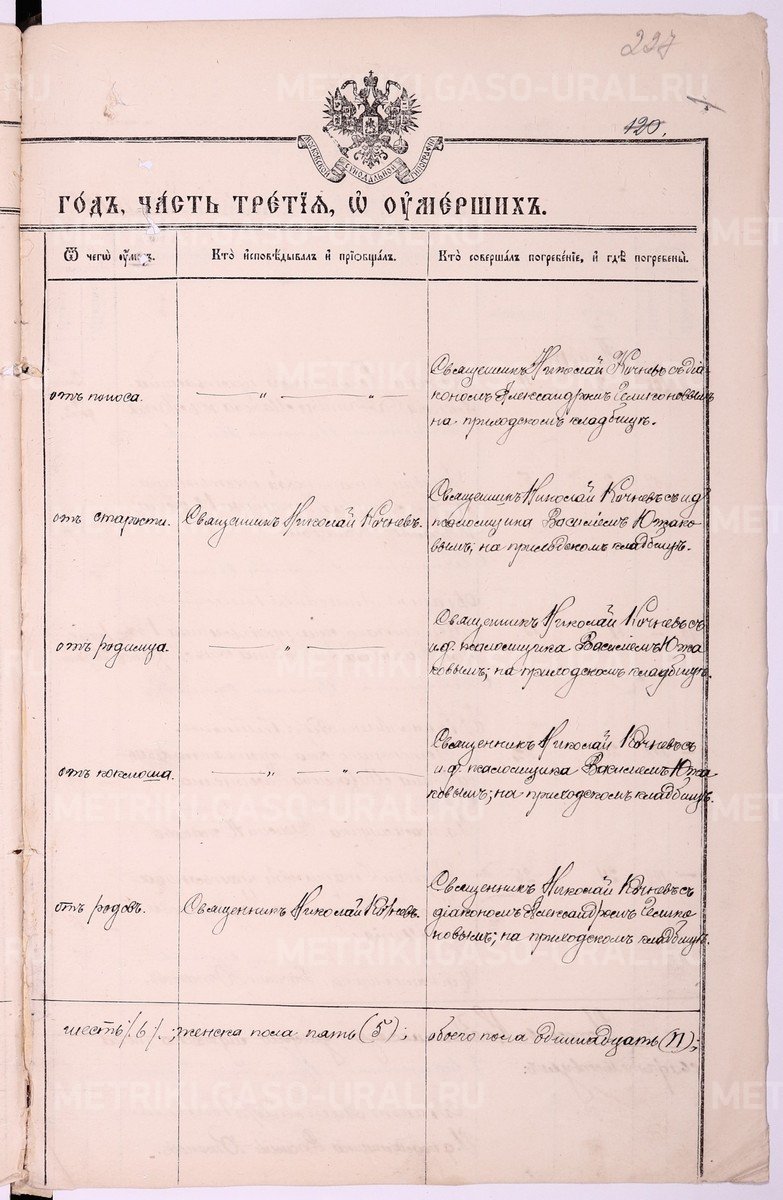 227
120.
МОСКОВСКОЙ СѴНОДАЛЬНОЙ ТИПОГРАФІИ
ГОДЪ, ЧАСТЬ ТРЕТІЯ, Ѽ ОУМЕРШИХЪ.
Ѿ чегѡ оумеръ.
Кто исповѣдывалъ и пріобщалъ.
Кто совершалъ погребеніе, и гдѣ погребены.
отъ поноса.
— „ — „ —
Священникъ Николай Кочневъ съ діа
кономъ Александромъ Геликоновымъ
на приходскомъ кладбищѣ.
отъ старости.
Священникъ Николай Кочневъ.
Священникъ Николай Кочневъ съ и.д.
псаломщика Василіемъ Южако
вымъ, на приходскомъ кладбищѣ.
отъ родимца.
— „ —
Священникъ Николай Кочневъ съ
и.д. псаломщика Василіемъ Южа
ковымъ; на приходскомъ кладбищѣ.
отъ коклюша.
— „ — „ —
Священникъ Николай Кочневъ съ
и.д. псаломщика Василіемъ Южа
ковымъ; на приходскомъ кладбищѣ.
отъ родовъ.
Священникъ Николай Кочневъ.
Священникъ Николай Кочневъ съ
діакономъ Александромъ Гелико
новымъ; на приходскомъ кладбищѣ.
шесть /.6/. ; женска пола пять (5) ; обоего пола одиннадцать (11) ;
METRIKI.GASO-URAL.RU